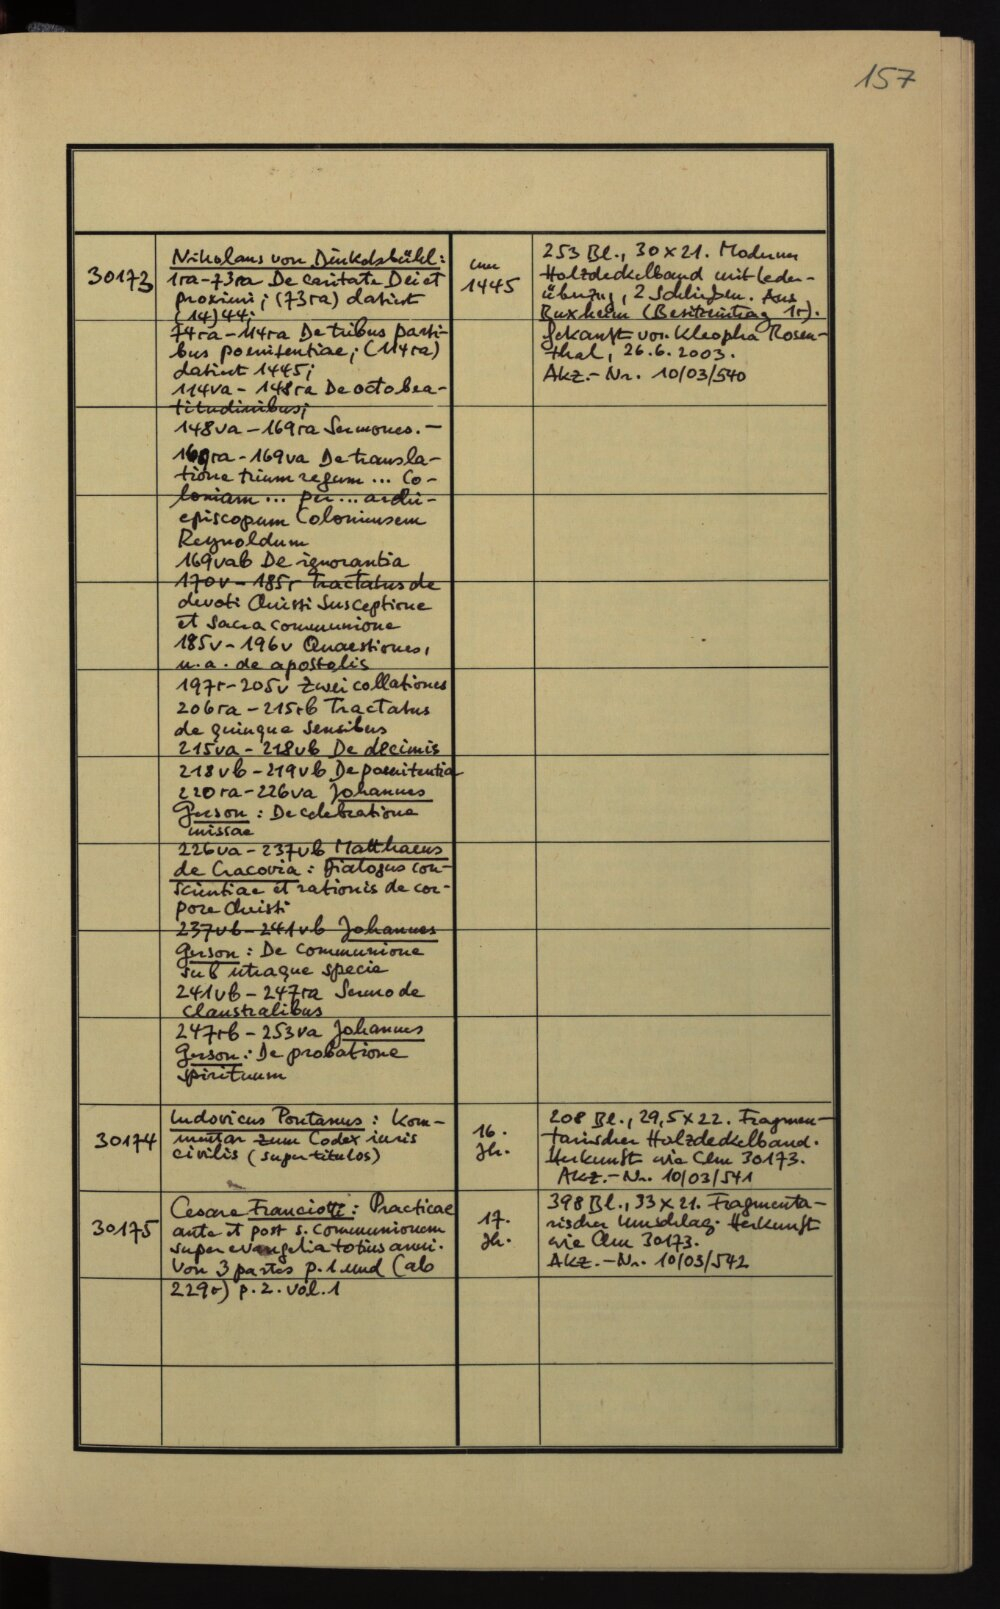 157
30173
Nikolaus von Dinkelsbühl:
1ra-73ra De caritate Dei et
proximi; (73ra) datiert
(14)44;
74ra-114ra De tribus parti-
bus poenitentiae; (114ra)
datiert 1445;
114va-148ra De octo bea-
titudinibus;
148va-169ra Sermones.-
169ra-169va De transla-
tione trium regum ... Co-
loniam ... per ... archi-
episcopum Coloniensem
Reynoldum
169vab De ignorantia
170v-185r Tractatus de
devoti Christi susceptione
et sacra communione
185v-196v Quaestiones,
u.a. de apostolis
197r-205v Zwei collationes
206ra-215rb Tractatus
de quinque sensibus
215va-218vb De decimis
218vb-219vb De poenitentia
220ra-226va Johannes
Gerson: De celebratione
missae
226va-237vb Matthaeus
de Cracovia: Dialogus con-
scientiae et rationis de cor-
pore Christi
237vb-241vb Johannes
Gerson: De communione
sub utraque specie
241vb-247ra Sermo de
claustralibus
247rb-253va Johannes
Gerson: De probatione
spirituum
um
1445
253 Bl., 30x21. Moderner
Holzdeckelband mit Leder-
überzug, 2 Schließen. Aus
Buxheim (Besitzeintrag 1r).
Gekauft von Kleopha Rosen-
thal, 26.6.2003.
Akz.-Nr. 10/03/540
30174
Ludovicus Pontanus: Kom-
mentar zum Codex iuris
civilis (super titulos)
16.
Jh.
208 Bl., 29,5x22. Fragmen-
tarischer Holzdeckelband.
Herkunft wie Clm 30173.
Akz.-Nr. 10/03/541
30175
Cesare Franciotti: Practicae
ante et post s. Communionem
super evangelia totius anni.
Von 3 partes p.1 und (ab
229r) p.2. vol.1
17.
Jh.
398 Bl., 33x21. Fragmenta-
rischer Umschlag. Herkunft
wie Clm 30173.
Akz.-Nr. 10/03/542